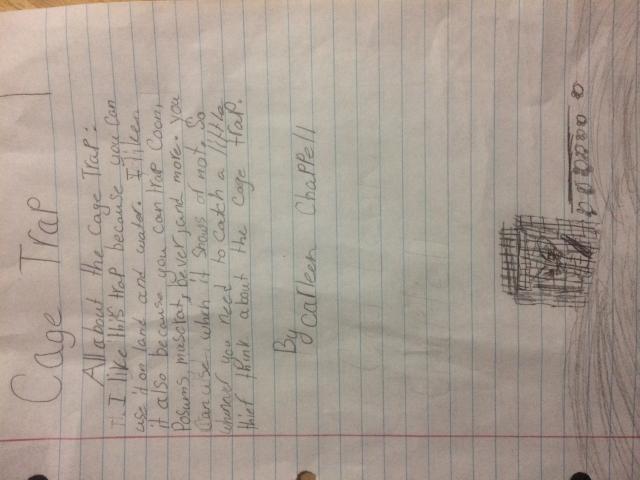 Cage Trap
All about the Cage Trap:
I like this trap because you can
use it on land and water. I like
it also because you can trap Coon,
Posums, muscrat, bever, and more. you
Can use when it snows or not. So
whenever you need to catch a little
thief think about the cage trap.
By
Colleen Chappell